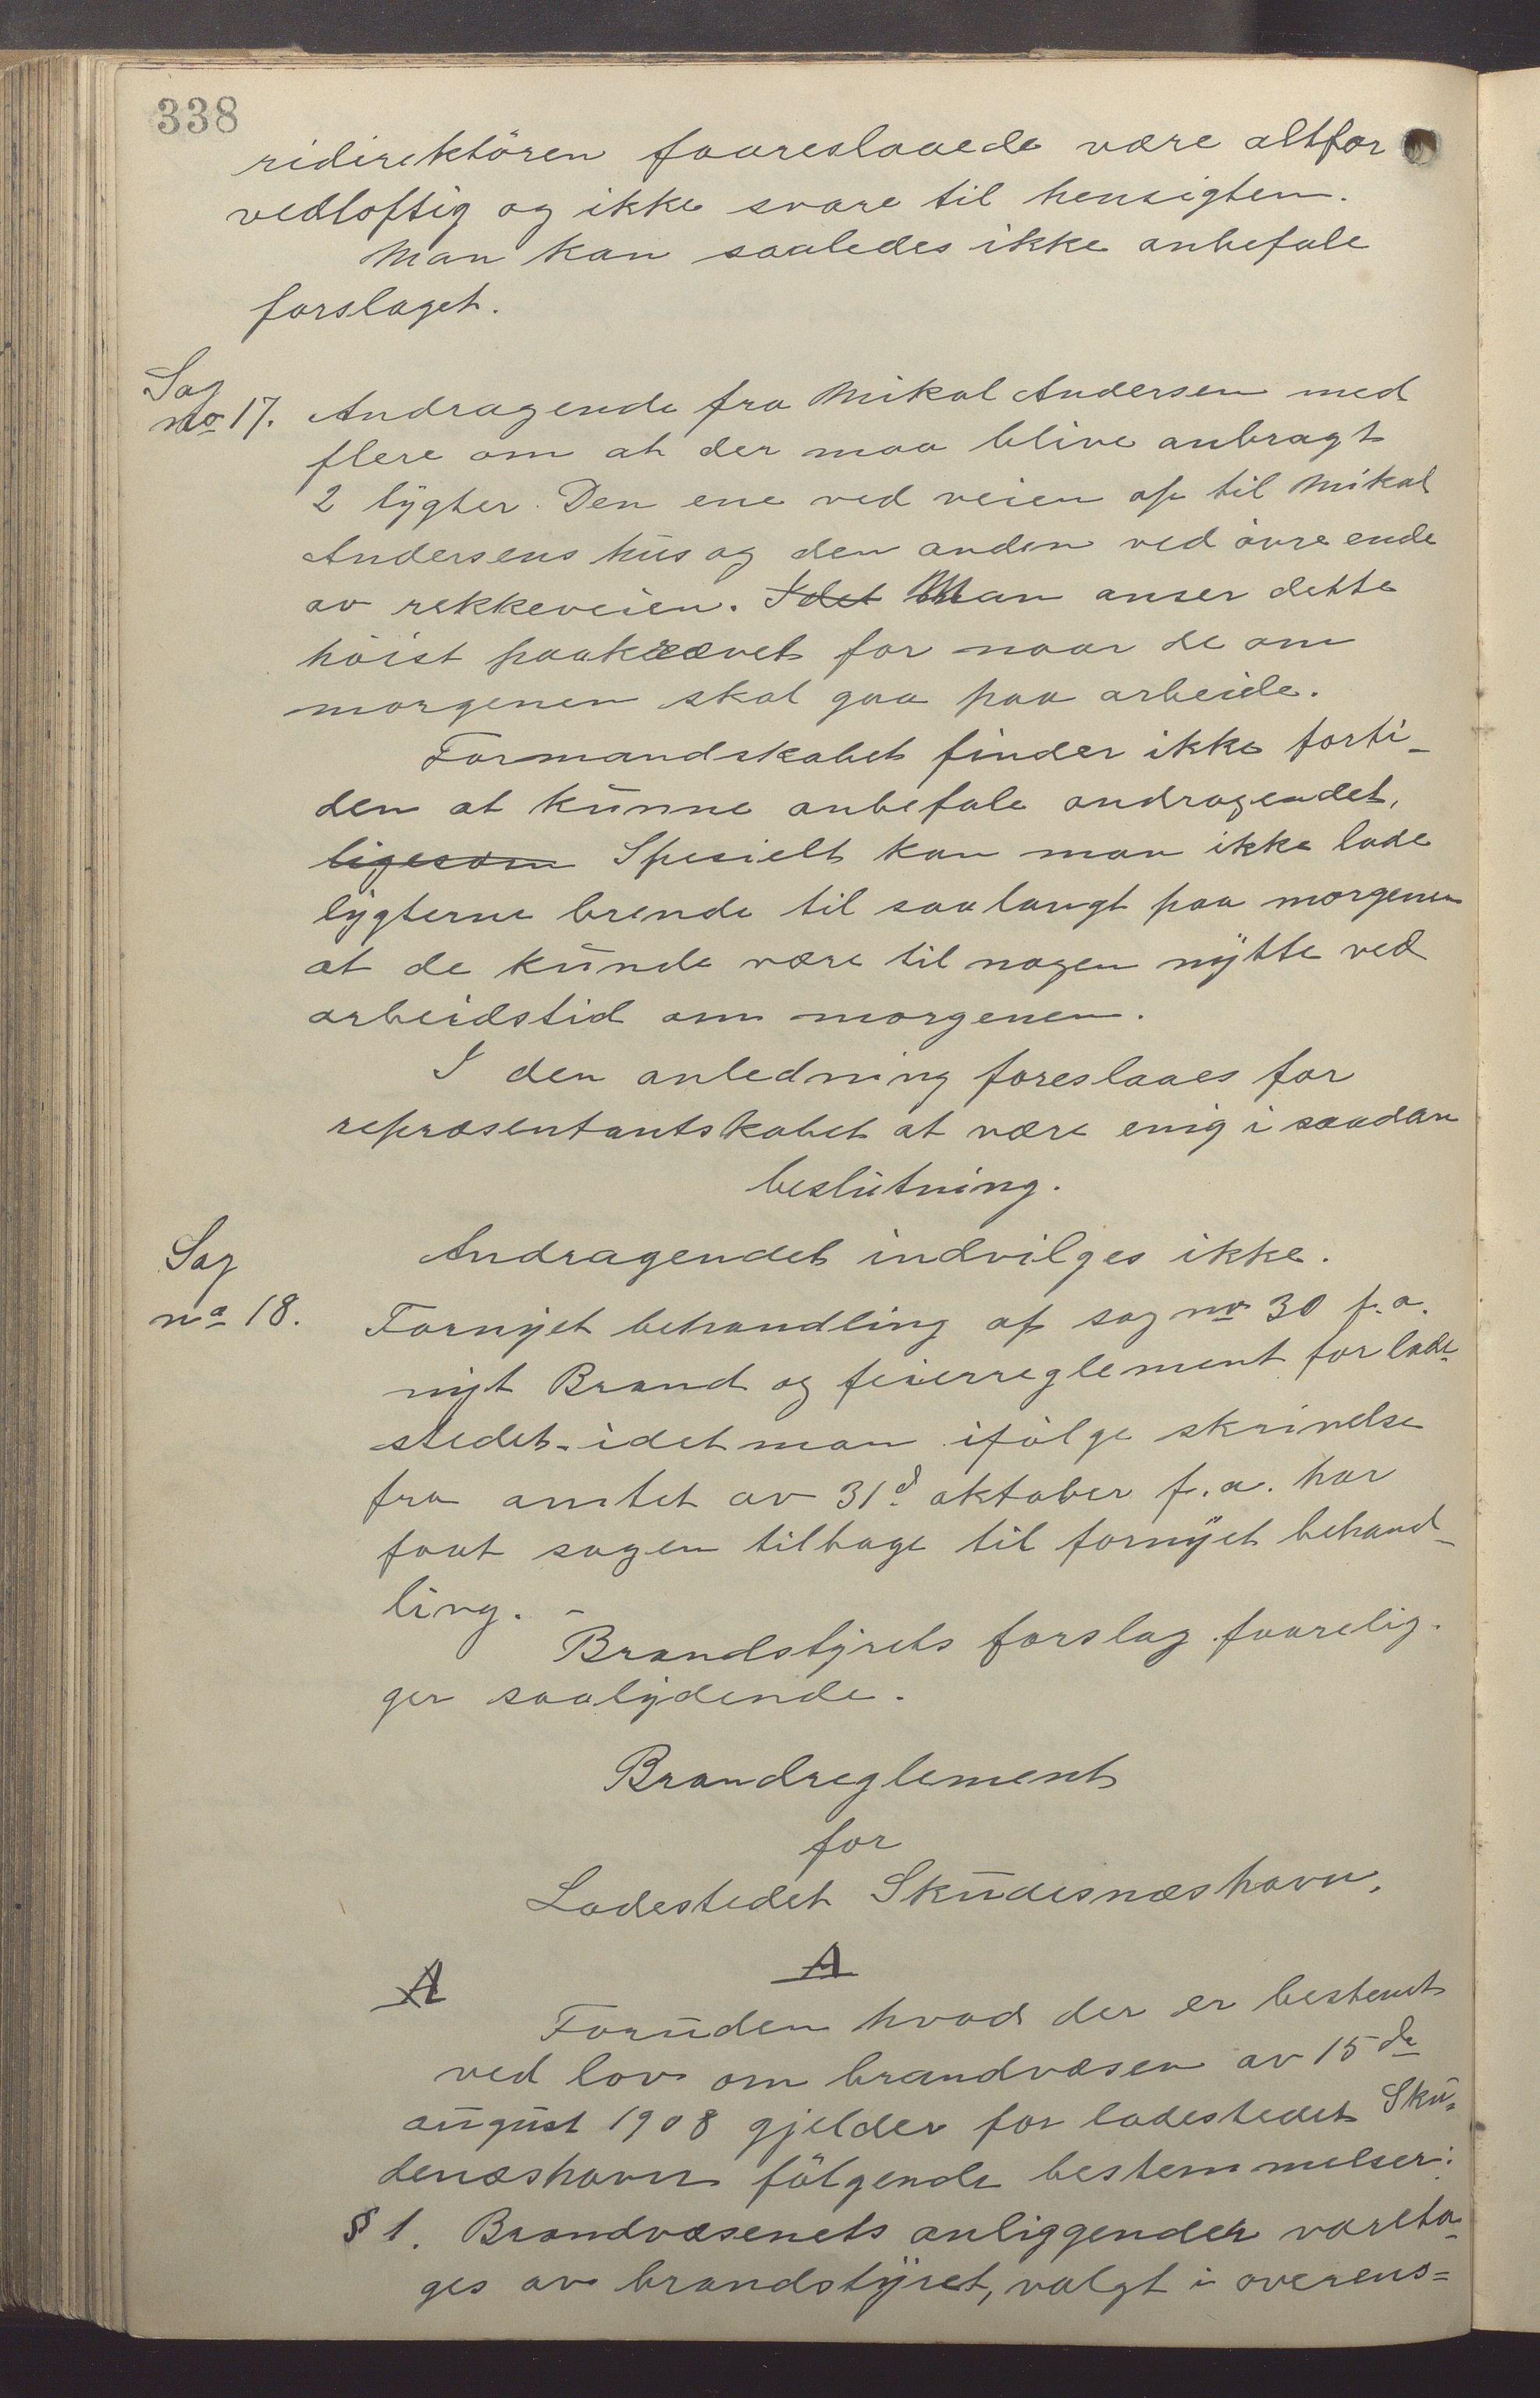 338
ridirektören faareslaaede være altfor
vedloftig og ikke svare til hensigten.
Man kan saaledes ikke anbefale
forslaget.
Sag
No 17. Andragende fra Mikal Andersen med
flere om at der maa blive anbragt
2 lygter. Den ene ved veien op til Mikal
Andersens hus og den anden ved övre ende
av rekkeveien. Idet Man anser dette
höist paakrævet for naar de om
morgenen skal gaa paa arbeide.
Formandskabet finder ikke forti-
den at kunne anbefale andragendet,
ligesom Spesielt kan man ikke lade
lygterne brende til saa langt paa morgenen
at de kunde være til nogen nytte ved
arbeidstid om morgenen.
I den anledning foreslaaes for
repræsentantskabet at være enig i saadan
beslutning.
Andragendet indvilges ikke.
Sag
no 18. Fornyet behandling af sag no 30 f.a.
nyt Brand og feierreglement for lade-
stedet - idet man ifölge skrivelse
fra amtet av 31d oktober f.a. har
faat sagen tilbage til fornyet behand-
ling. -
Brandstyrets forslag faarelig-
ger saalydende.
Brandreglement
for
Ladestedet Skudesnæshavn.
A A
Foruden hvad der er bestemt
ved lov om brandvæsen av 15de
august 1908 gjelder for ladestedet Sku-
denæshavn fölgende bestemmelser:
§ 1. Brandvæsenets anliggender vareta-
ges av brandstyret, valgt i overens=